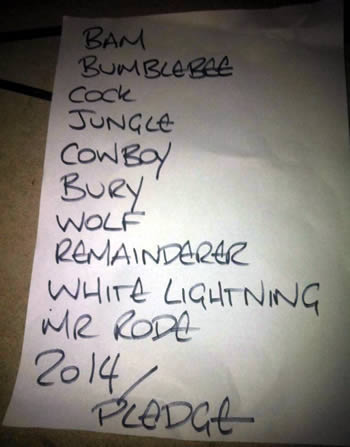 BAM
BUMBLEBEE
COCK
JUNGLE
COWBOY
BURY
WOLF
REMAINDERER
WHITE LIGHTNING
MR RODE
2014/
PLEDGE